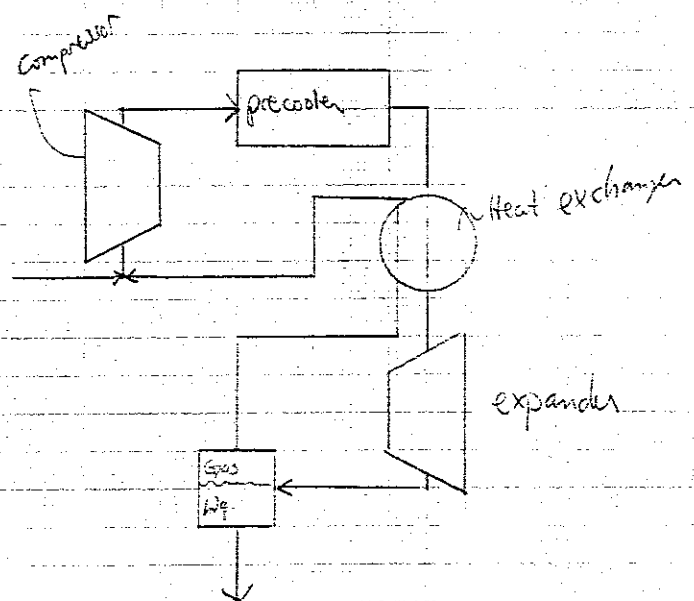 Compressor
precooler
Heat exchanger
expander
Gas
Liq.